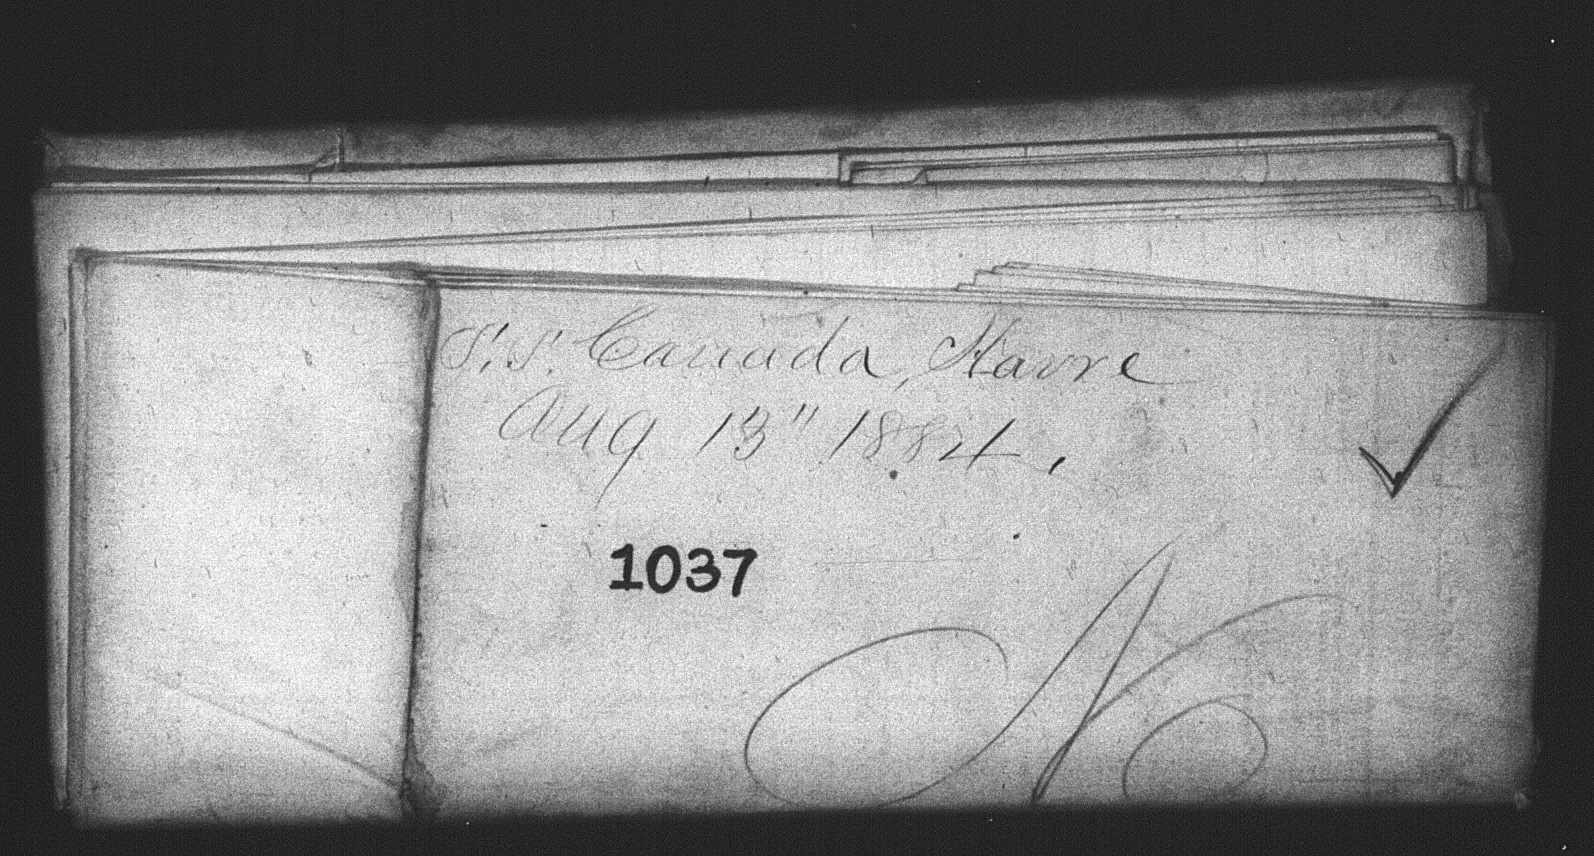 S.S. Canada, Havre
Aug 13" 1884.
1037
N